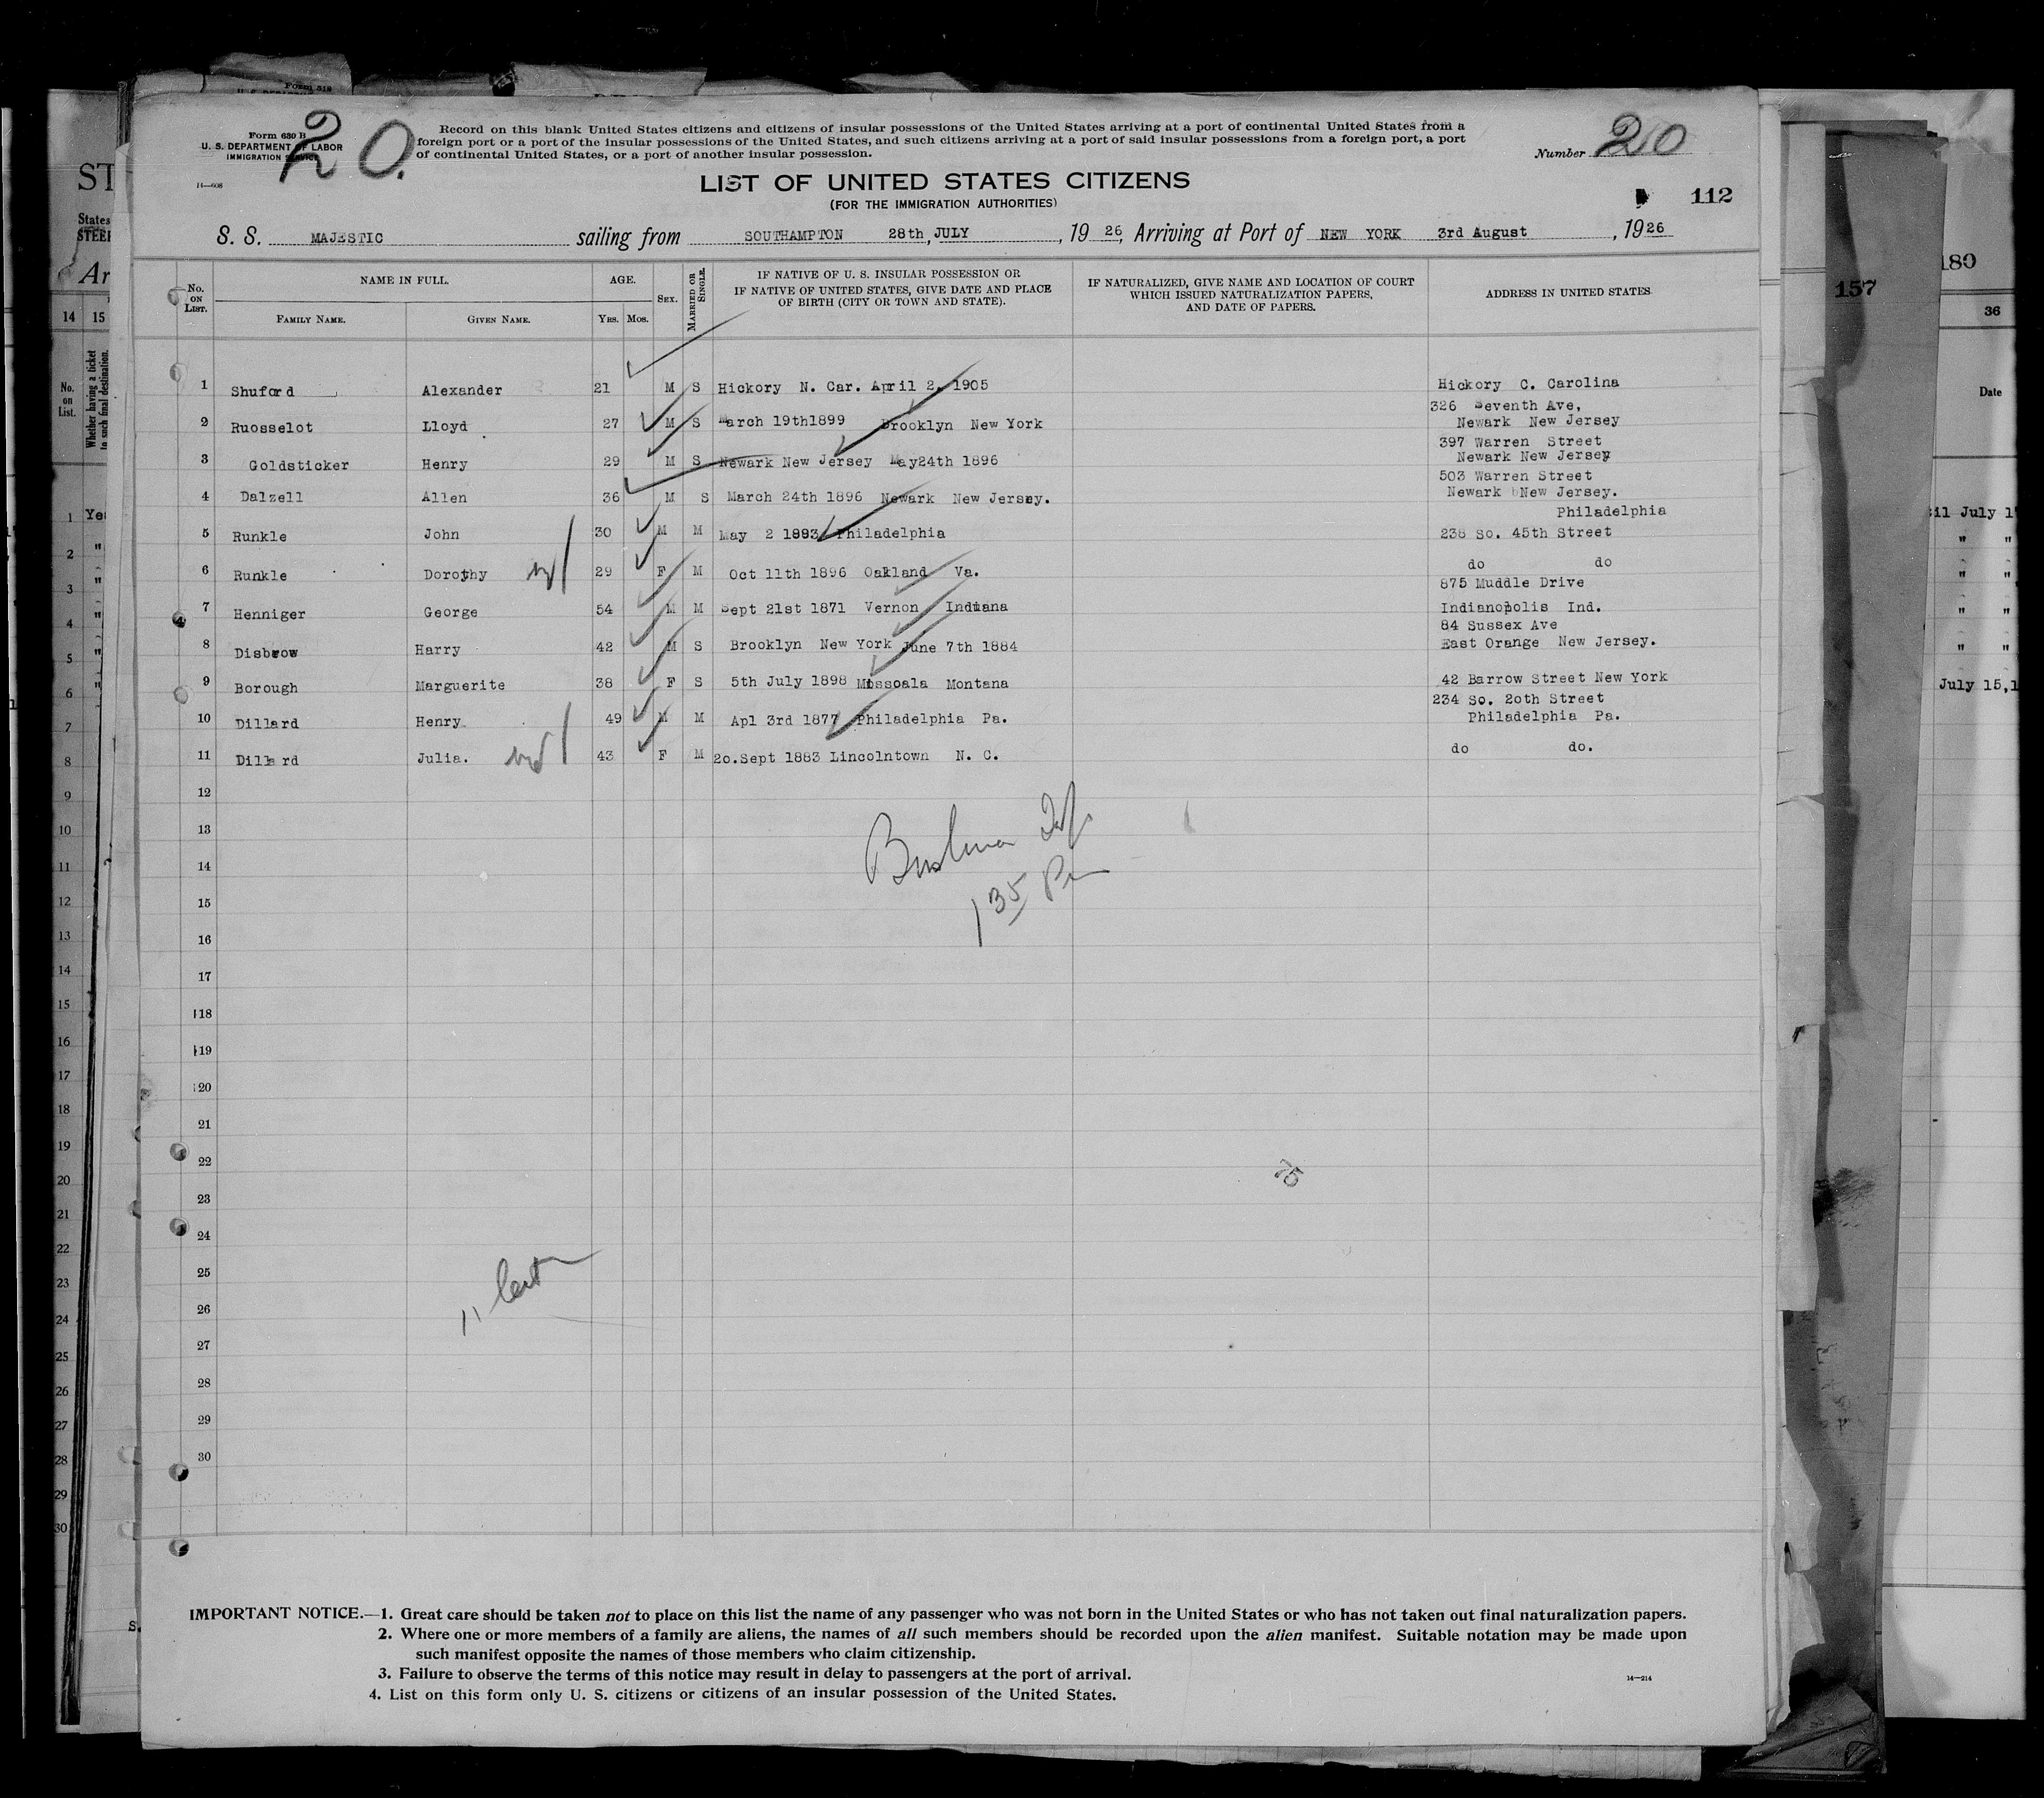 Form 630 B
U. S. DEPARTMENT OF LABOR
IMMIGRATION SERVICE
14—608
20.
Record on this blank United States citizens and citizens of insular possessions of the United States arriving at a port of continental United States from a
foreign port or a port of the insular possessions of the United States, and such citizens arriving at a port of said insular possessions from a foreign port, a port
of continental United States, or a port of another insular possession.
Number 20
LIST OF UNITED STATES CITIZENS
(FOR THE IMMIGRATION AUTHORITIES)
112
S. S. MAJESTIC sailing from SOUTHAMPTON 28th, JULY, 19 26, Arriving at Port of NEW YORK 3rd August, 1926
No. ON LIST.
NAME IN FULL.
FAMILY NAME. GIVEN NAME.
AGE.
YRS. MOS.
SEX.
MARRIED OR SINGLE.
IF NATIVE OF U. S. INSULAR POSSESSION OR
IF NATIVE OF UNITED STATES, GIVE DATE AND PLACE
OF BIRTH (CITY OR TOWN AND STATE).
IF NATURALIZED, GIVE NAME AND LOCATION OF COURT
WHICH ISSUED NATURALIZATION PAPERS,
AND DATE OF PAPERS.
ADDRESS IN UNITED STATES
1 Shuford Alexander 21 M S Hickory N. Car. April 2, 1905 Hickory C. Carolina
326 Seventh Ave,
2 Ruosselot Lloyd 27 M S March 19th1899 Brooklyn New York Newark New Jersey
397 Warren Street
3 Goldsticker Henry 29 M S Newark New Jersey May24th 1896 Newark New Jersey
503 Warren Street
4 Dalzell Allen 36 M S March 24th 1896 Newark New Jersey. Newark New Jersey.
Philadelphia
5 Runkle John 30 M M May 2 1893 Philadelphia 238 So. 45th Street
6 Runkle Dorothy 29 F M Oct 11th 1896 Oakland Va. do do
875 Muddle Drive
7 Henniger George 54 M M Sept 21st 1871 Vernon Indiana Indianopolis Ind.
84 Sussex Ave
8 Disbrow Harry 42 M S Brooklyn New York June 7th 1884 East Orange New Jersey.
9 Borough Marguerite 38 F S 5th July 1898 Missoala Montana 42 Barrow Street New York
234 So. 20th Street
10 Dillard Henry 49 M M Apl 3rd 1877 Philadelphia Pa. Philadelphia Pa.
11 Dillard Julia. 43 F M 20.Sept 1883 Lincolntown N. C. do do.
12
13
14
15
1 35 Pm
16
17
18
19
20
21
22
23
24
25
26
27
28
29
30
IMPORTANT NOTICE.—1. Great care should be taken not to place on this list the name of any passenger who was not born in the United States or who has not taken out final naturalization papers.
2. Where one or more members of a family are aliens, the names of all such members should be recorded upon the alien manifest. Suitable notation may be made upon
such manifest opposite the names of those members who claim citizenship.
3. Failure to observe the terms of this notice may result in delay to passengers at the port of arrival.
4. List on this form only U. S. citizens or citizens of an insular possession of the United States.
14—214
157
180
36
Date
July 15,1